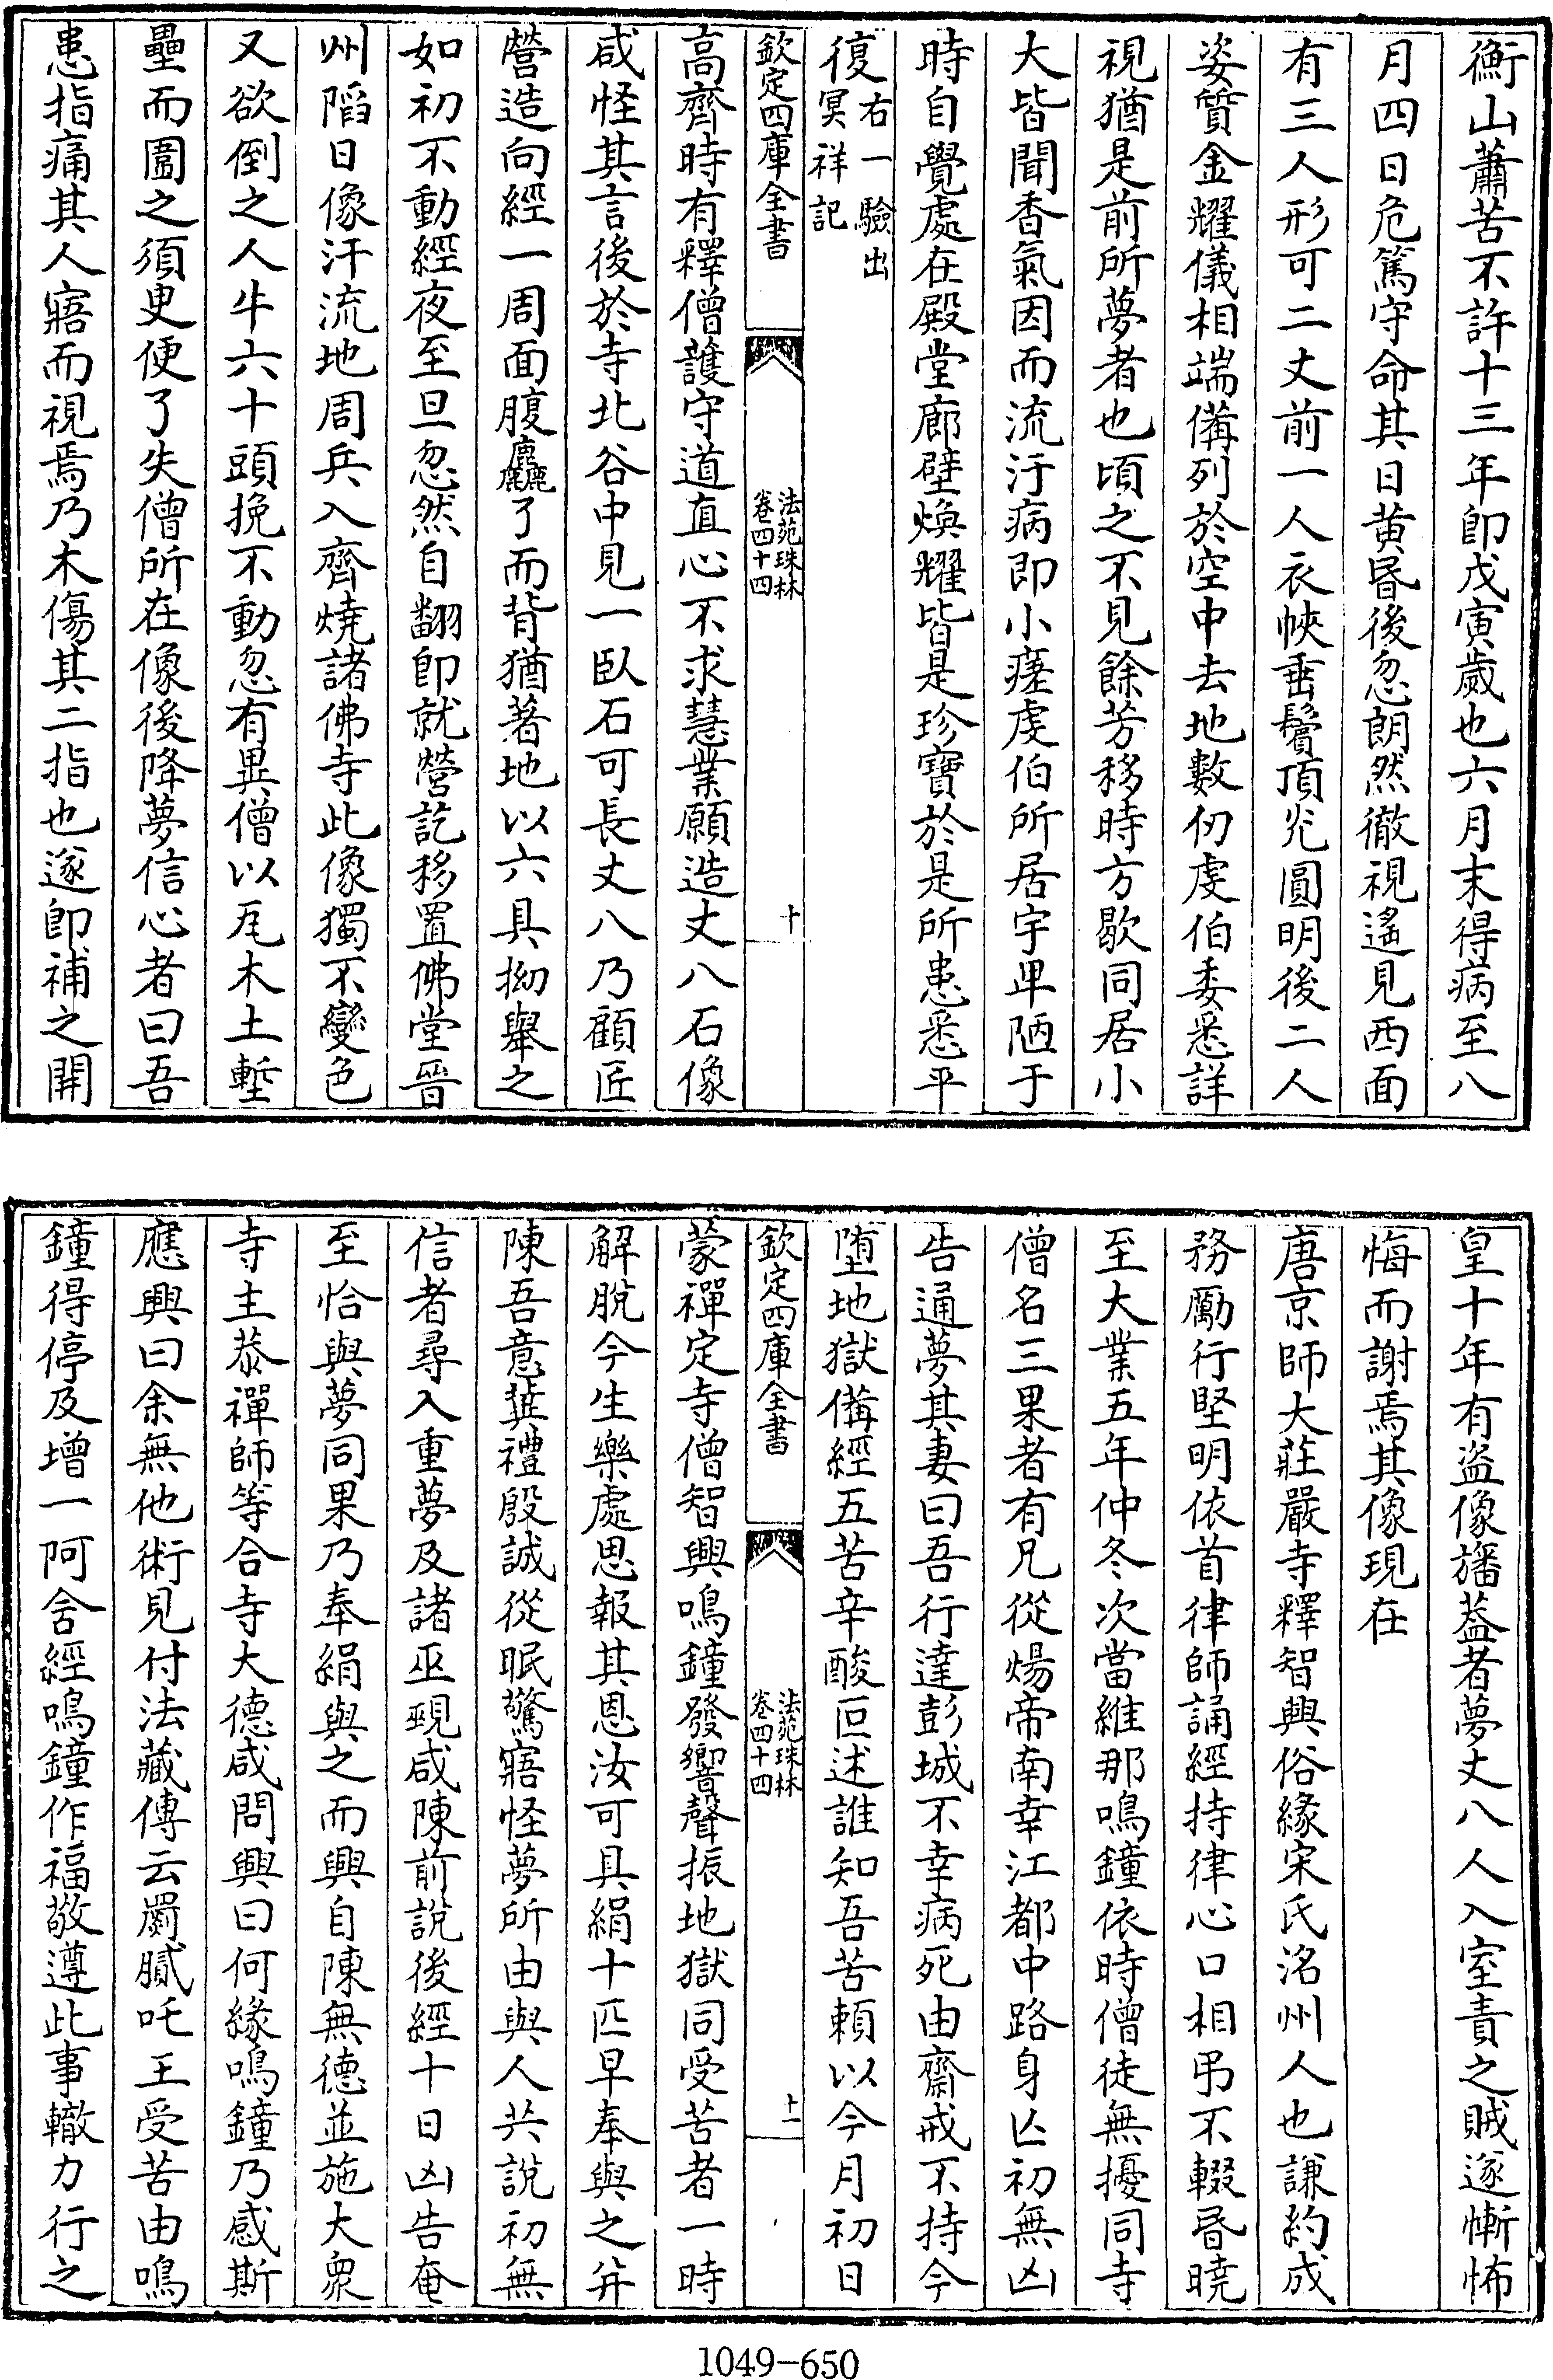 衡山蕭苦不許十三年即戊寅歲也六月末得病至八
月四日危篤守命其日黄昬後忽朗然徹視遙見西面
有三人形可二丈前一人衣帙垂鬢頂光圓明後二人
姿質金耀儀相端備列於空中去地數仞虔伯委悉詳
視猶是前所夢者也頃之不見餘芳移時方歇同居小
大皆聞香氣因而流汙病即小瘥虔伯所居宇卑陋于
時自覺處在殿堂廊壁煥耀皆是珍寶於是所患悉平
復右一驗出
冥祥記
欽定四庫全書
法苑珠林
卷四十四
十
高齊時有釋僧護守道直心不求慧業願造丈八石像
咸怪其言後於寺北谷中見一臥石可長丈八乃顧匠
營造向經一周面腹麤了而背猶著地以六具拗舉之
如初不動經夜至旦忽然自翻即就營訖移置佛堂晉
州陷日像汗流地周兵入齊燒諸佛寺此像獨不變色
又欲倒之人牛六十頭挽不動忽有異僧以瓦木土墼
壘而圍之須更便了失僧所在像後降夢信心者曰吾
患指痛其人寤而視焉乃木傷其二指也遂即補之開
皇十年有盜像旛葢者夢丈八人入室責之賊遂慚怖
悔而謝焉其像現在
唐京師大莊嚴寺釋智興俗緣宋氏洺州人也謙約成
務勵行堅明依首律師誦經持律心口相弔不輟昬曉
至大業五年仲冬次當維那鳴鐘依時僧徒無擾同寺
僧名三果者有兄從煬帝南幸江都中路身亾初無凶
告通夢其妻曰吾行達彭城不幸病死由齋戒不持今
墮地獄備經五苦辛酸叵述誰知吾苦賴以今月初日
欽定四庫全書
法苑珠林
卷四十四
十一
蒙禪定寺僧智興鳴鐘發響聲振地獄同受苦者一時
解脫今生樂處思報其恩汝可具絹十匹早奉與之并
陳吾意兾禮殷誠從眠驚寤怪夢所由與人共說初無
信者尋入重夢及諸巫覡咸陳前說後經十日凶告奄
至恰與夢同果乃奉絹與之而興自陳無德並施大衆
寺主恭禪師等合寺大德咸問興曰何緣鳴鐘乃感斯
應興曰余無他術見付法藏傳云罽膩吒王受苦由鳴
鐘得停及增一阿含經鳴鐘作福敬遵此事轍力行之
1049-650